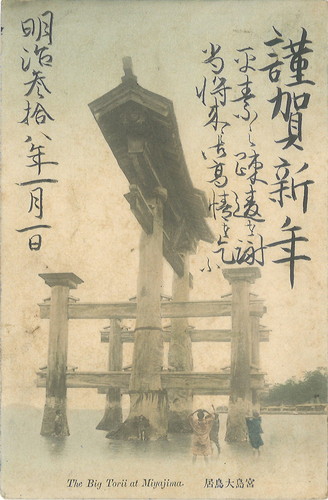 謹賀新年
平素之疎遠を謝
当将来御高情を乞ふ
明治叁拾八年一月一日
The Big Torii at Miyajima.
宮島大鳥居